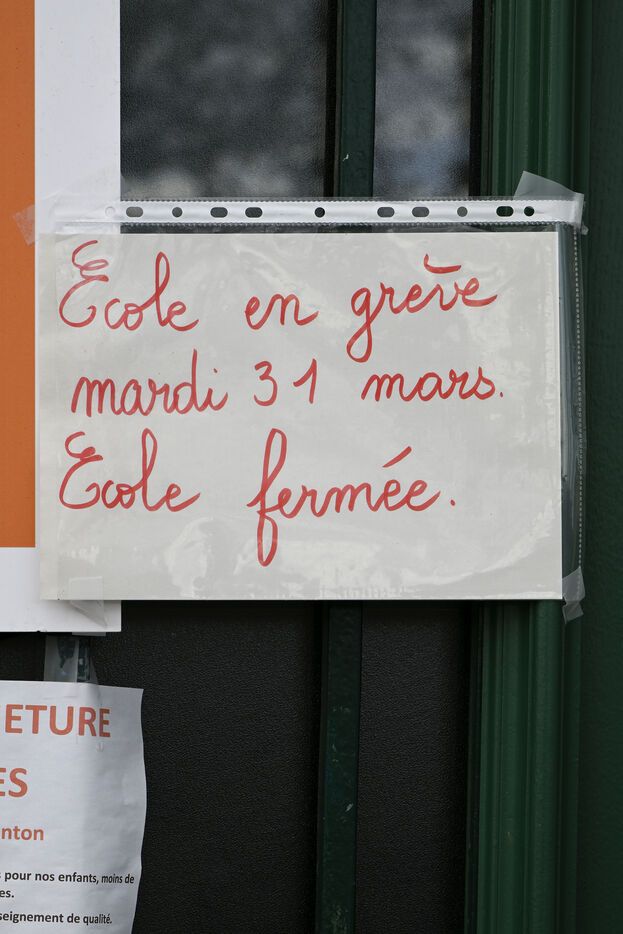 École en grève
mardi 31 mars.
École fermée.
ETURE
ES
nton
pour nos enfants, moins de
es.
seignement de qualité.